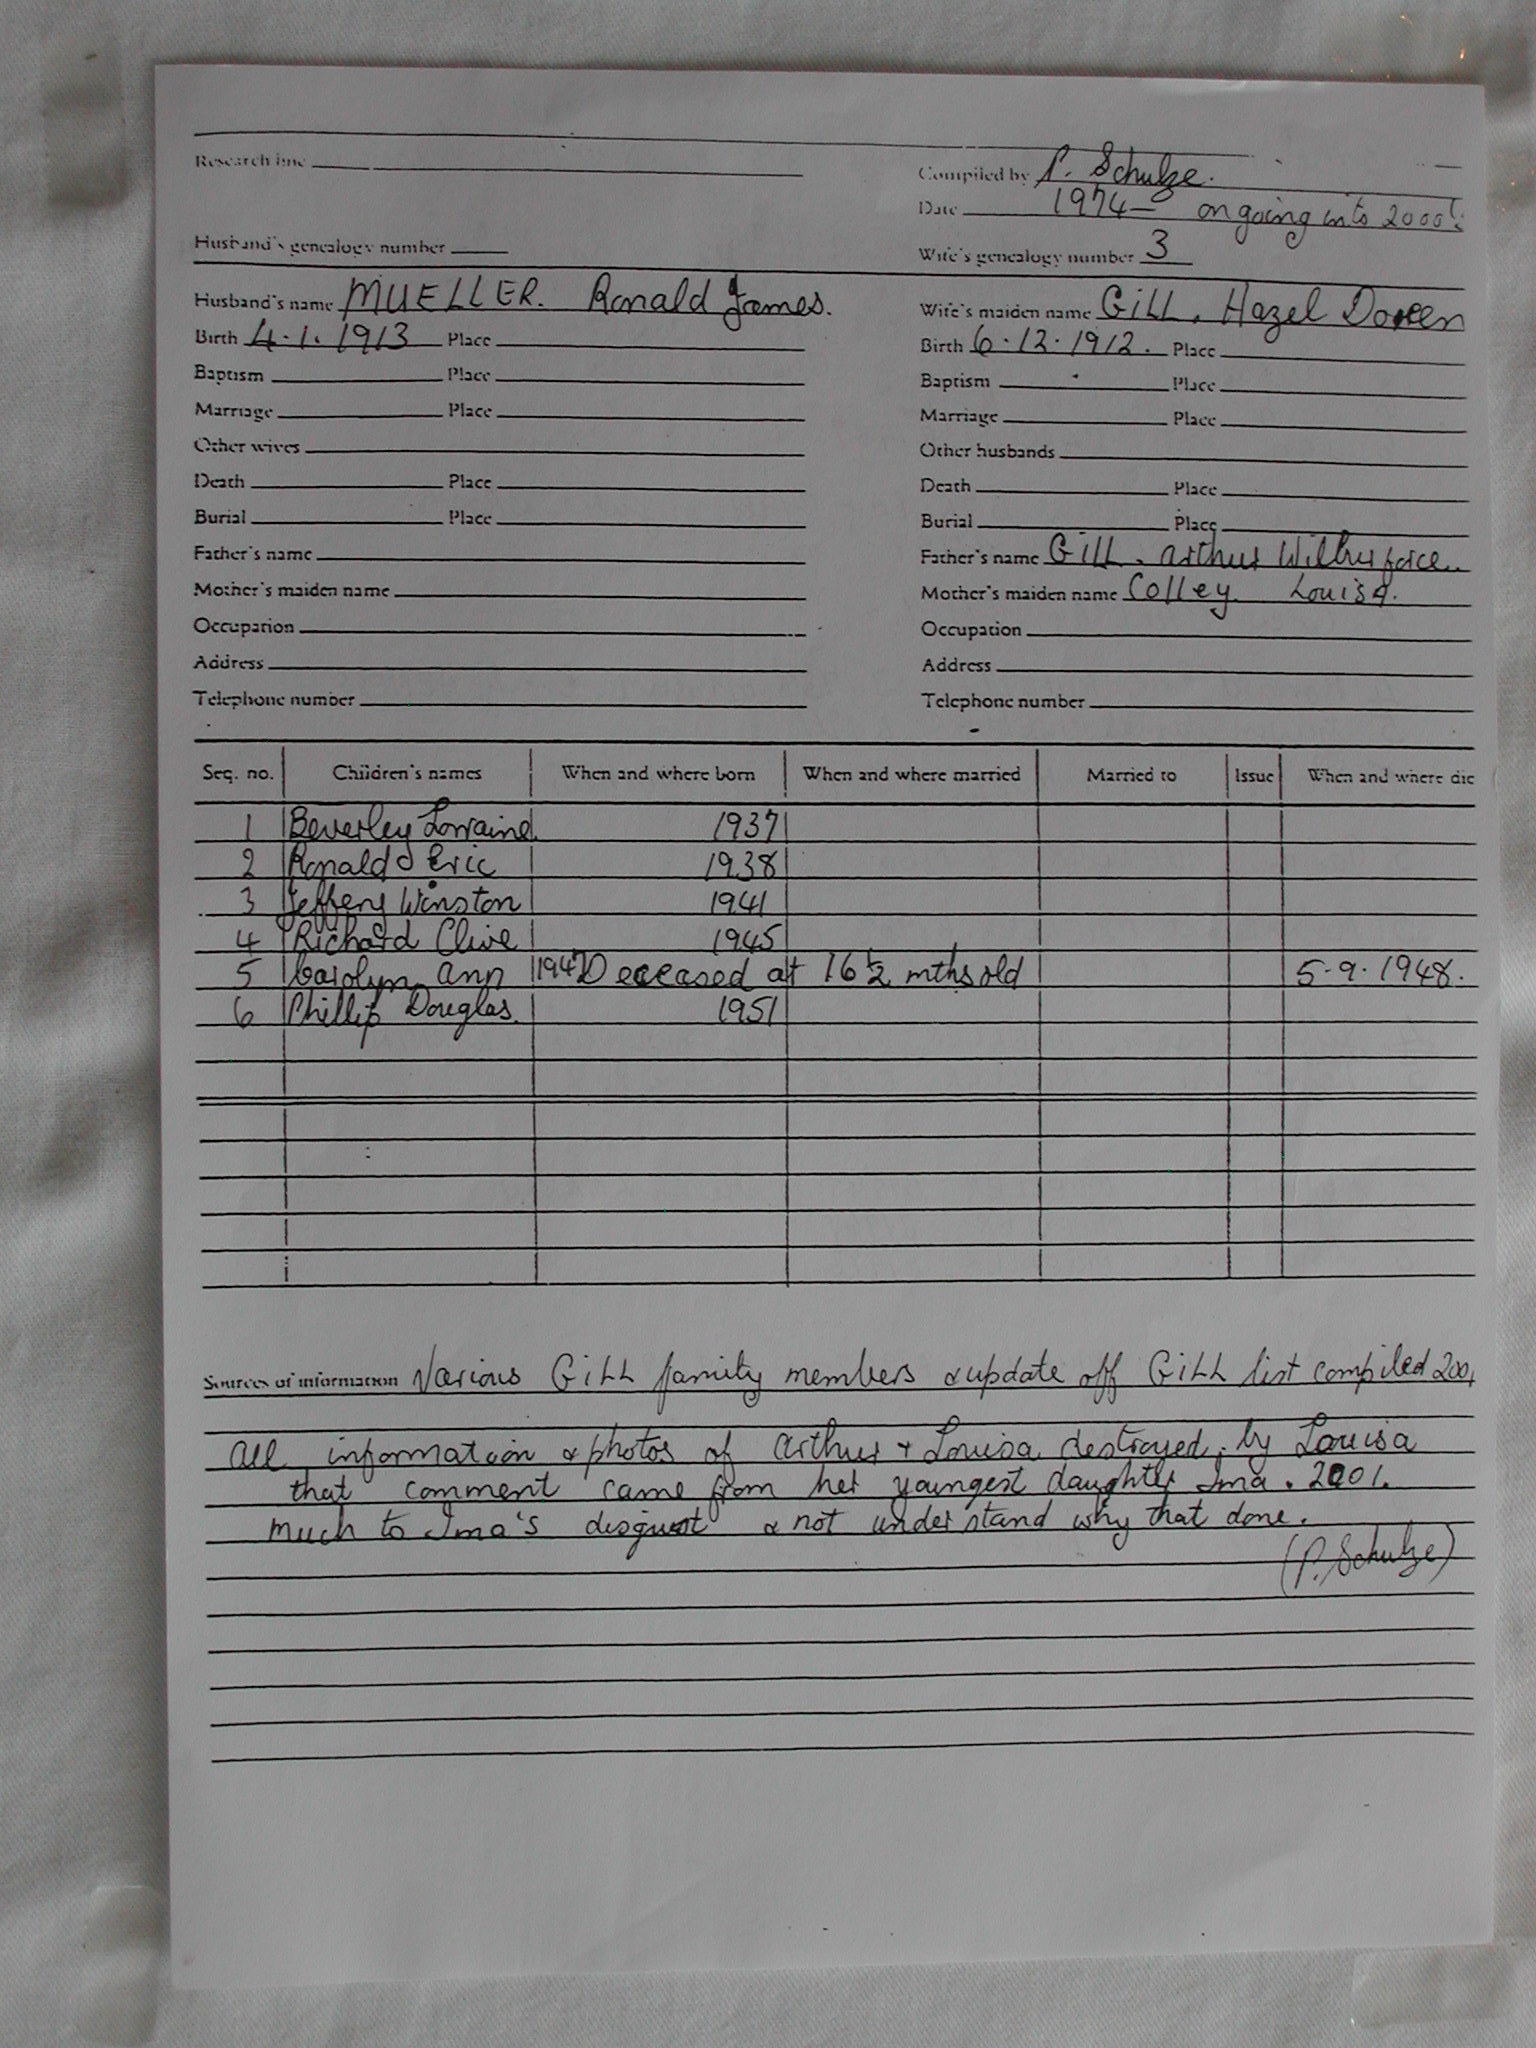 Research line
Compiled by P. Schulze.
Date 1974 — ongoing into 2000's
Husband's genealogy number
Wife's genealogy number 3
Husband's name MUELLER. Ronald James.
Wife's maiden name GiLL, Hazel Doreen
Birth 4.1.1913 Place
Birth 6.12.1912. Place
Baptism Place
Baptism Place
Marriage Place
Marriage Place
Other wives
Other husbands
Death Place
Death Place
Burial Place
Burial Place
Father's name
Father's name GiLL. Arthur Wilberforce.
Mother's maiden name
Mother's maiden name Colley Louisa.
Occupation
Occupation
Address
Address
Telephone number
Telephone number
Seq. no. Children's names When and where born When and where married Married to Issue When and where die
1 Beverley Lorraine 1937
2 Ronald Eric 1938
3 Jeffery Winston 1941
4 Richard Clive 1945
5 Carolyn Ann 1947 Deceased at 16 1/2 mths old 5.9.1948.
6 Phillip Douglas. 1951
Sources of information Various GiLL family members & update off GiLL list compiled 2001
All information & photos of Arthur + Louisa destroyed by Louisa
that comment came from her youngest daughter Ima. 2001.
much to Ima's disgust & not understand why that done.
(P. Schulze)